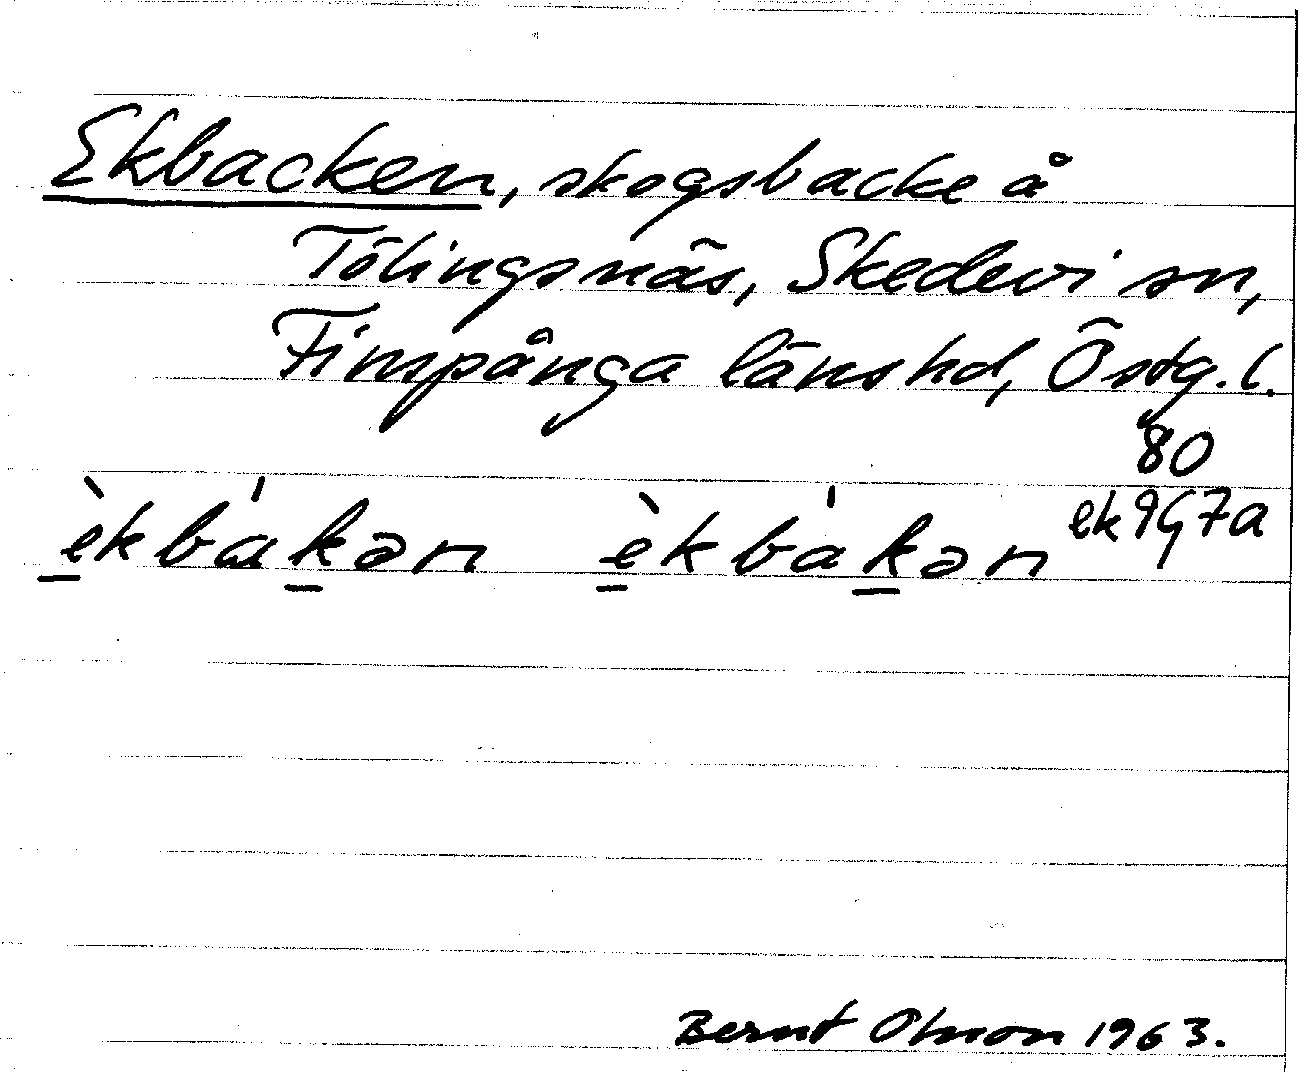 Ekbacken, skogsbacke å
Tölingsnäs, Skedevi sn,
Finspånga länshd, Östg.l.
80
ek 9G7a
èkbákən èkbákən
Bernt Olmon 1963.